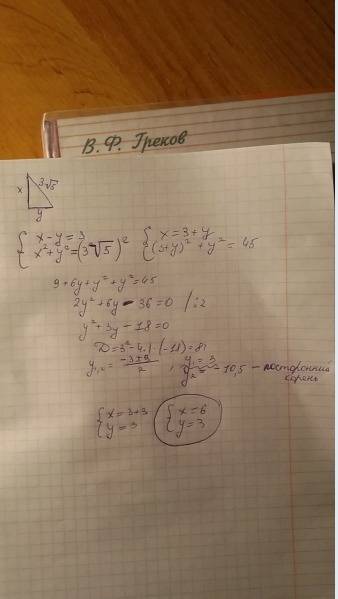 В. Ф. Греков
x 3√5
y
{ x-y=3
x²+y²=(3√5)²
{ x=3+y
(3+y)²+y²=45
9+6y+y²+y²=45
2y²+6y-36=0 /:2
y²+3y-18=0
D=3²-4·1·(-18)=81
y₁,₂= (-3±9)/2 ; y₁=3
y₂=-10,5 - посторонний корень
{ x=3+3
y=3
{ x=6
y=3